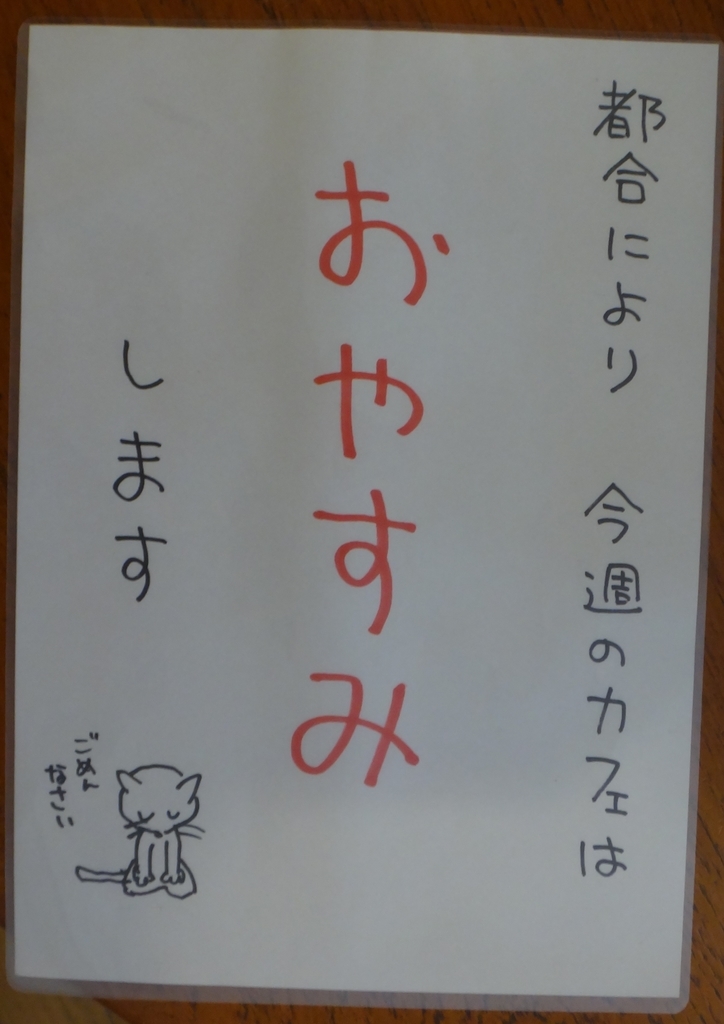 都合により 今週のカフェは
おやすみ
します
ごめん
なさい